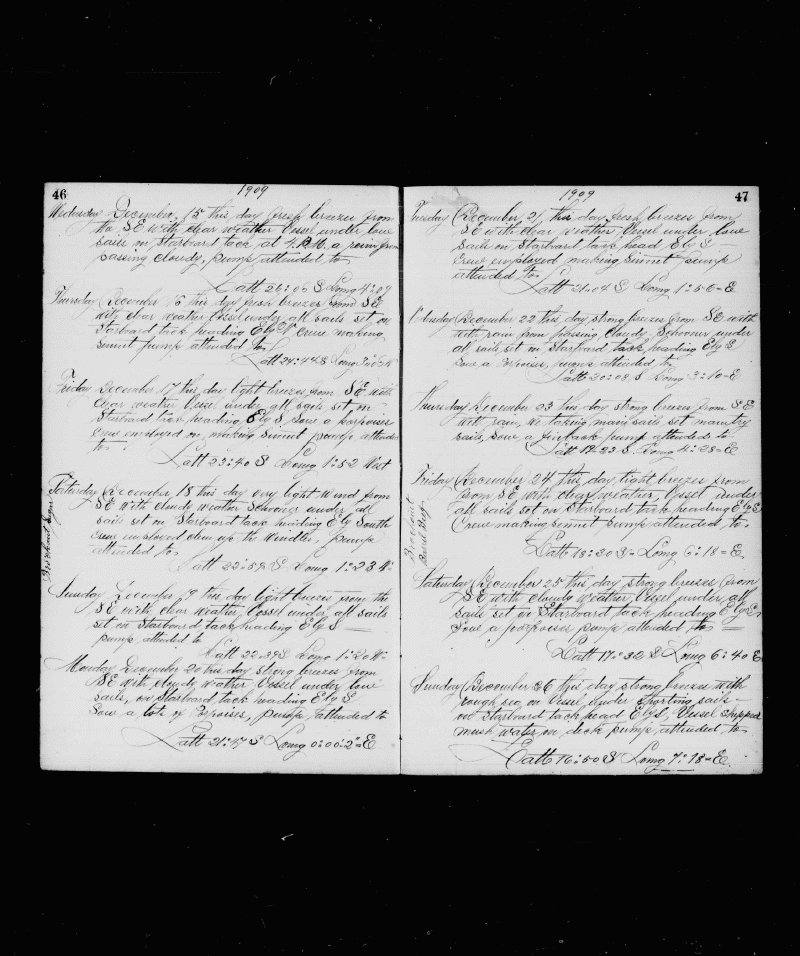 46
1909
Wednesday December, 15 this day fresh breezes from
the SE with clear weather Vessel under low
sails on Starboard tack at 4. P.M. a rain from
passing cloudy, pump attended to
Latt 26:00 S Long 4:07
Thursday December 16 this day fresh breezes from SE
with clear weather Vessel under all sails set on
Starboard tack heading E by S Crew making
sennit pump attended to,
Latt 24:44 S Long
Friday December 17 this day light breezes from SE with
clear weather Vessel under all sails set on
Starboard tack heading E by S, Sow a porpoises
Crew employed on making Sinnit pump attended
to
Latt 23:40 S Long 1:52 West
Saturday December 18 this day very light Wind from
SE with cloudy weather Schooner under all
sails set on Starboard tack heading E by South
Crew employed clean up the Windles, pump
attended to
Latt 22:58 S Long 1:23
Sunday December 19 this day light breezes from the
SE with clear weather Vessel under all sails
set on Starboard tack heading E by S
pump attended to
Latt 22:39 S Long 1:20 W
Monday December 20 this day strong breezes from
SE with cloudy weather Vessel under low
sails, on Starboard tack heading E by S
Sow a lots of Porpoises, pump attended to
Latt 21:47 S Long 0:00:2 E
47
1909
Tuesday December 21, this day fresh breezes from
SE with clear weather Vessel under low
sails on Starboard tack head E by S
Crew employed making sinnit pump
attended to
Latt 21:04 S Long 1:56 E
Wednesday December 22 this day strong breezes from SE with
with rain from passing cloudy Schooner under
all sails set on Starboard tack heading E by S
Sow a Porpoises, pump attended to
Latt 20:08 S Long 3:10 E
Thursday December 23 this day strong breeze from SE
with rain, we taking main sails set
sails, sow a finback pump attended to
Latt 19:23 S Long 4:28 E
Friday December 24 this day light breezes from
from SE with clear weather, Vessel under
all sails set on Starboard tack heading E by S
Crew making sennit pump attended to
Latt 18:20 S Long 6:18 E
Saturday December 25 this day strong breezes from
SE with cloudy weather Vessel under all
sails set on Starboard tack heading E by S
Sow a porpoises pump attended to
Latt 17:32 S Long 6:40 E
Sunday December 26 this day strong breezes with
rough sea on Vessel under shorting sails
on Starboard tack head E by S, Vessel Shipped
mush water on deck pump attended to
Latt 16:50 S Long 7:18 E